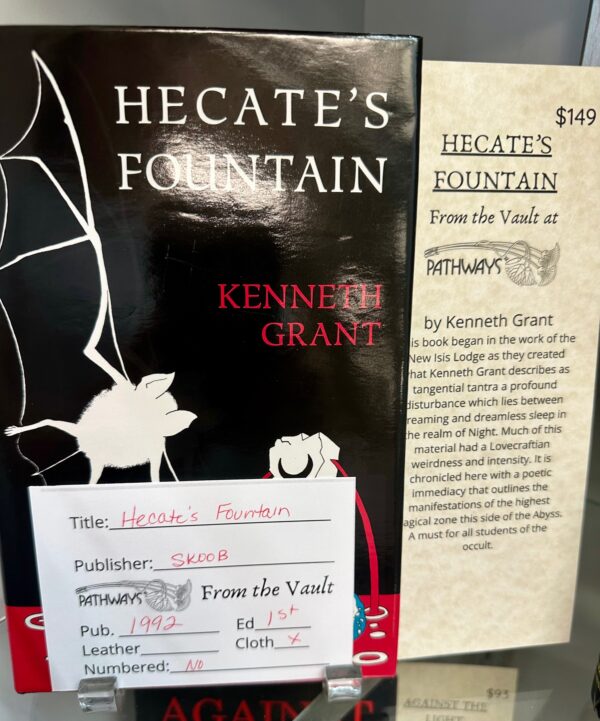 HECATE'S
FOUNTAIN
KENNETH
GRANT
Title: Hecate's Fountain
Publisher: SKOOB
PATHWAYS From the Vault
Pub. 1992 Ed 1st
Leather Cloth x
Numbered: NO
$149
HECATE'S
FOUNTAIN
From the Vault at
PATHWAYS
by Kenneth Grant
is book began in the work of the
New Isis Lodge as they created
hat Kenneth Grant describes as
tangential tantra a profound
disturbance which lies between
reaming and dreamless sleep in
the realm of Night. Much of this
material had a Lovecraftian
weirdness and intensity. It is
chronicled here with a poetic
immediacy that outlines the
manifestations of the highest
agical zone this side of the Abyss.
A must for all students of the
occult.
AGAINST
$93
AGAINST THE
LIGHT